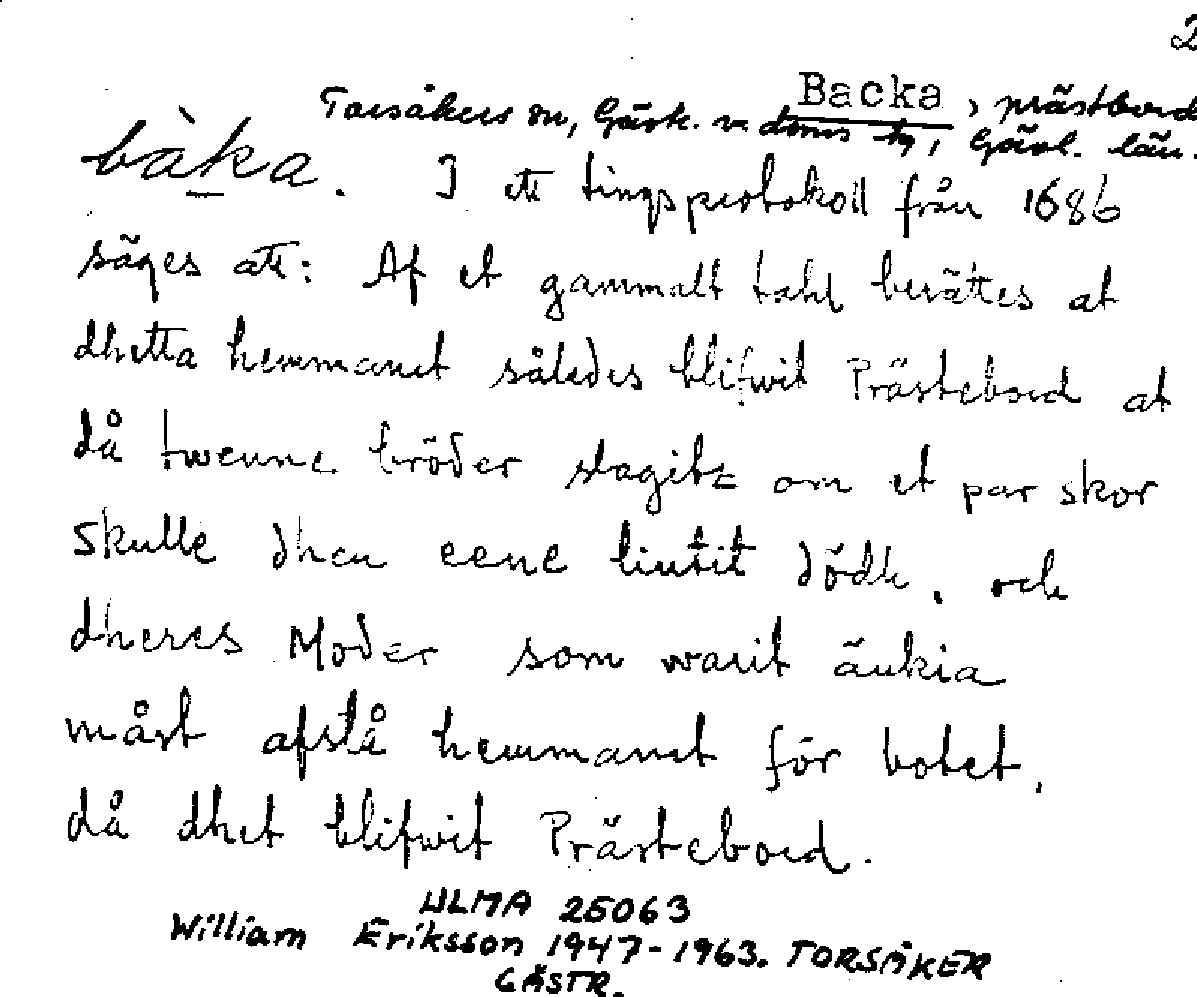 2
Backa, prästbord
Torsåkers sn, Gästr. v. doms tg, Gävl. län.
bàka. I ett tingsprotokoll från 1686
säges att: Af et gammalt tahl berättes at
dhetta hemmanet således blifwit Prästebord at
då twenne bröder slagits om et par skor
skulle dhen eene liutit dödh, och
dheres Moder som warit änkia
måst afstå hemmanet för botet,
då dhet blifwit Prästebord.
ULMA 25063
William Eriksson 1947-1963. TORSÅKER
GÄSTR.